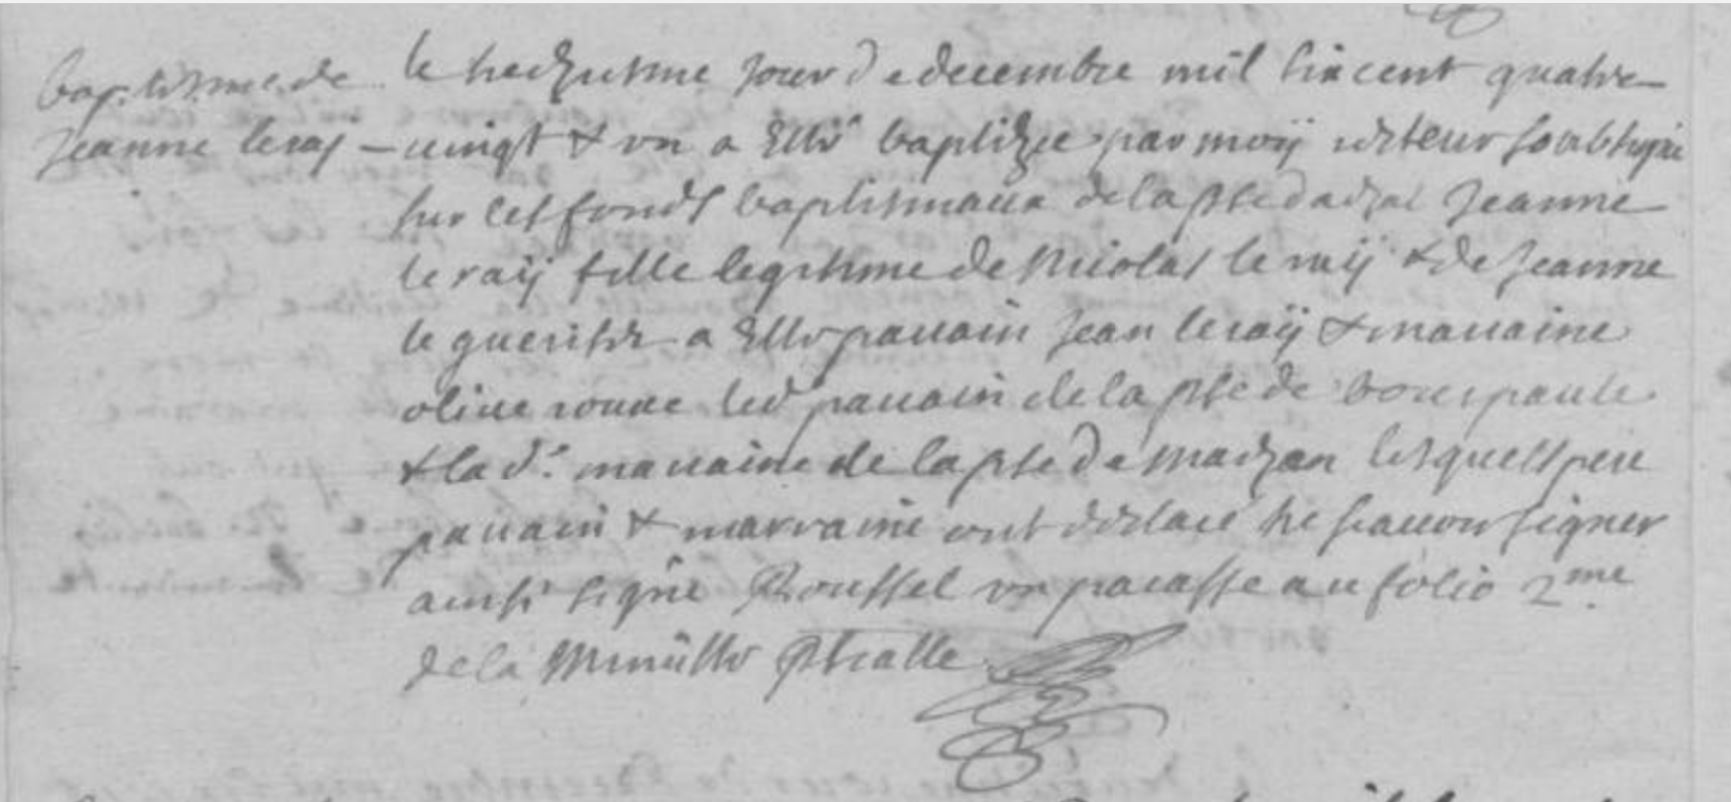 baptisme de
Jeanne leray –
le treziesme jour de decembre mil six cent quatre
vingt & un a esté baptizée par moy recteur soubsigné
sur les fonds baptismaux de la psse d'adzal Jeanne
le raÿ fille legitime de Nicolas le raÿ & de Jeanne
le guerisve a esté parrain Jean le raÿ & marraine
olive led parrain de la psse de bourpaule
& lad. marraine de la psse de marzan lesquels pere
parain & marraine ont declaré ne scavoir signer
ainsi signé Roussel on par au folio 2me
de la Minütte